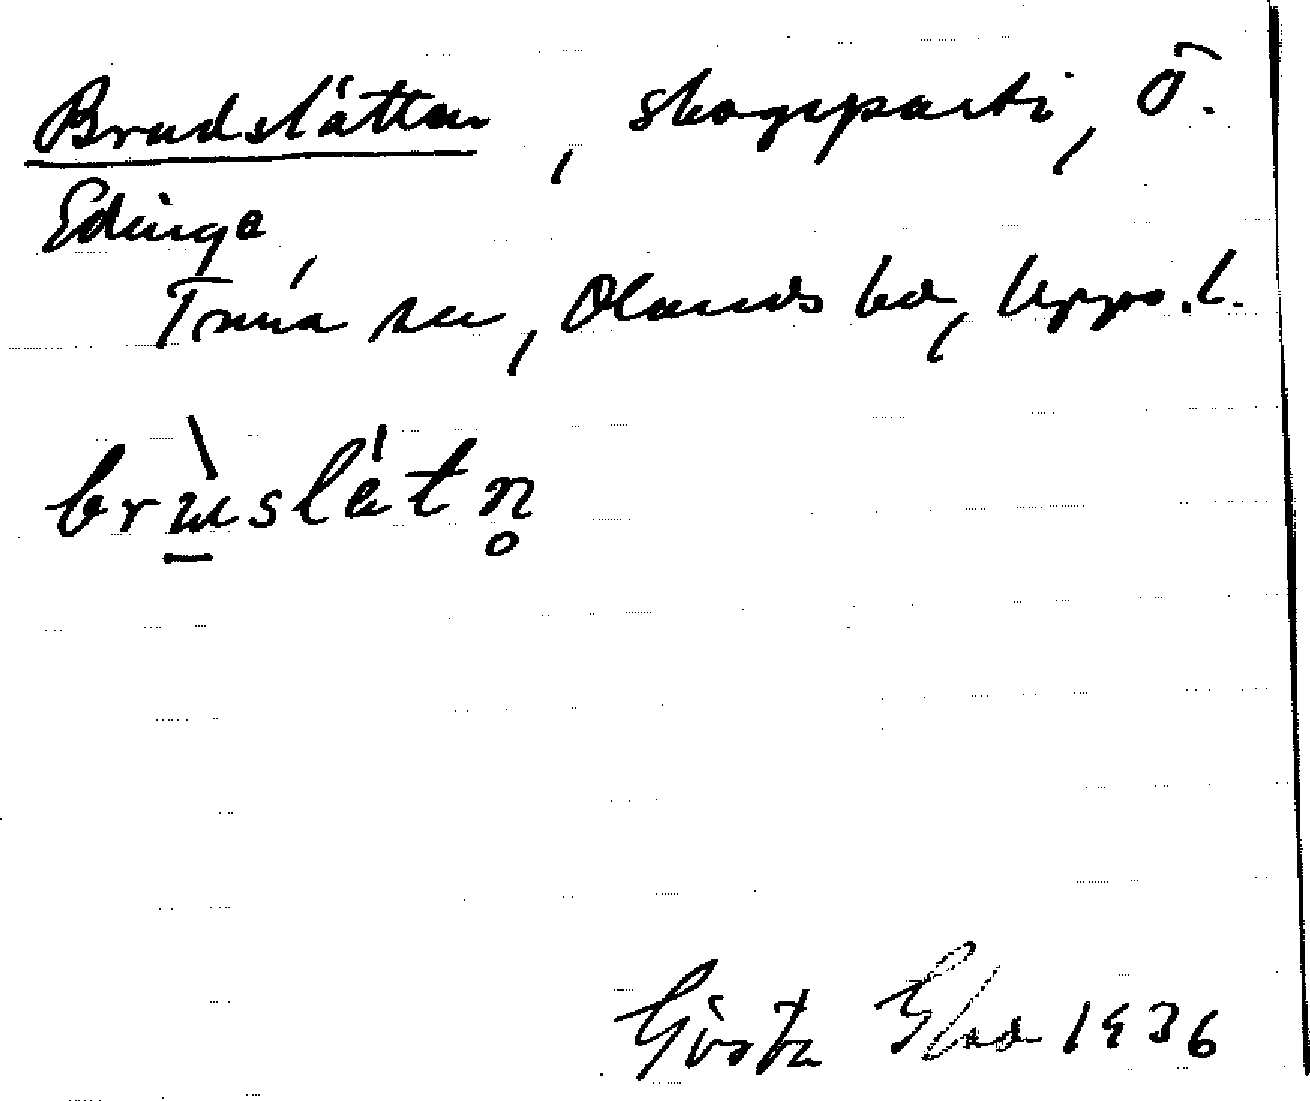 Brudslåtten, skogsparti, Ö.
Edinga,
Tuna sn, Olands hd, Upps. l.
brùslátn̥
Gösta 1936